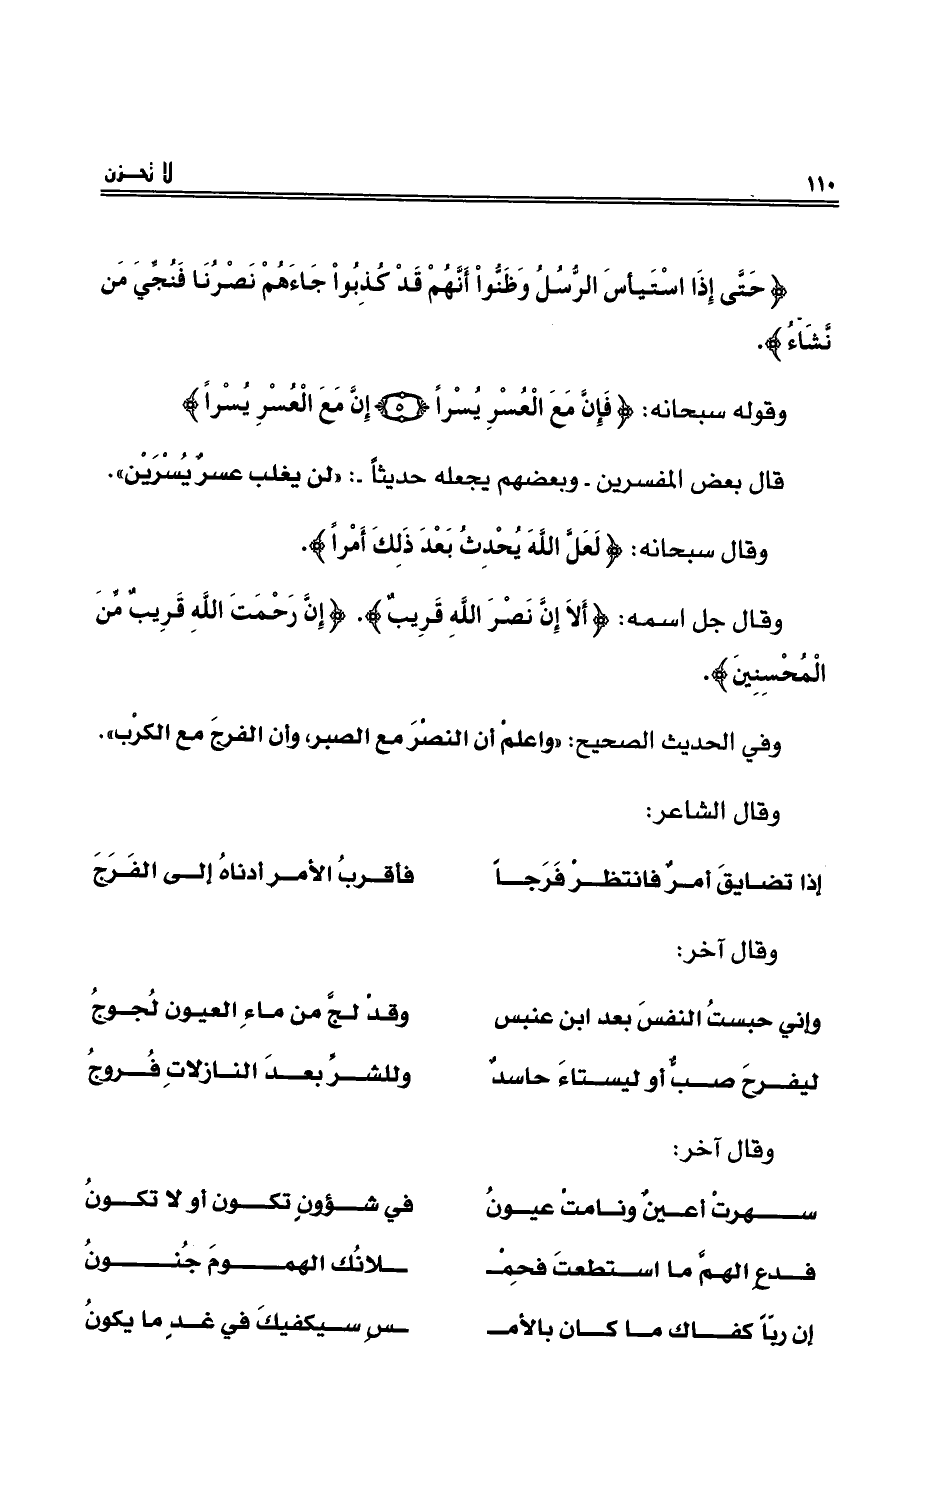 ١١٠ لا تحزن
﴿حَتَّى إِذَا اسْتَيأسَ الرُّسُلُ وَظَنُّواْ أَنَّهُمْ قَدْ كُذِبُواْ جَاءَهُمْ نَصْرُنَا فَنُجِّيَ مَن
نَّشَاءُ﴾.
وقوله سبحانه: ﴿فَإِنَّ مَعَ الْعُسْرِ يُسْراً ﴿٥﴾ إِنَّ مَعَ الْعُسْرِ يُسْراً﴾
قال بعض المفسرين ـ وبعضهم يجعله حديثاً ـ: «لن يغلب عسرٌ يُسْرَيْن».
وقال سبحانه: ﴿لَعَلَّ اللَّهَ يُحْدِثُ بَعْدَ ذَلِكَ أَمْراً﴾.
وقال جل اسمه: ﴿أَلاَ إِنَّ نَصْرَ اللَّهِ قَرِيبٌ﴾. ﴿إِنَّ رَحْمَتَ اللَّهِ قَرِيبٌ مِّنَ
الْمُحْسِنِينَ﴾.
وفي الحديث الصحيح: «واعلمْ أن النصْرَ مع الصبر، وأن الفرجَ مع الكرْب».
وقال الشاعر:
إذا تضايقَ أمرٌ فانتظرْ فَرَجاً فأقربُ الأمر أدناهُ إلى الفَرَجَ
وقال آخر:
وإني حبستُ النفسَ بعد ابن عنبس وقدْ لجَّ من ماءِ العيون لُجوجُ
ليفرحَ صبٌّ أو ليستاءَ حاسدٌ وللشرِّ بعدَ النازلاتِ فُروجُ
وقال آخر:
سهرتْ أعينٌ ونامتْ عيونُ في شؤونٍ تكون أو لا تكونُ
فدعِ الهمَّ ما استطعتَ فحِمْـ ـلانُك الهمومَ جُنونُ
إن ربّاً كفاك ما كان بالأمـ ـسِ سيكفيكَ في غدٍ ما يكونُ